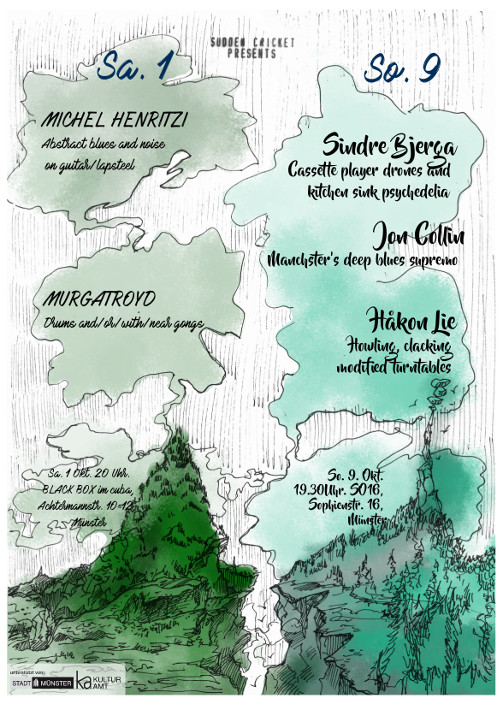 SUDDEN CRICKET
PRESENTS
Sa. 1
MICHEL HENRITZI
Abstract blues and noise
on guitar/lapsteel
MURGATROYD
Drums and/or/with/near gongs
Sa. 1 Okt. 20 Uhr.
BLACK BOX im cuba,
Achtermannstr. 10-12
Münster
So. 9
Sindre Bjerga
Cassette player drones and
kitchen sink psychedelia
Jon Collin
Manchster's deep blues supremo
Håkon Lie
Howling, clacking
modified turntables
So. 9. Okt.
19.30Uhr. SO16,
Sophienstr. 16,
Münster
unterstützt von:
STADT MÜNSTER
ka KULTUR
AMT